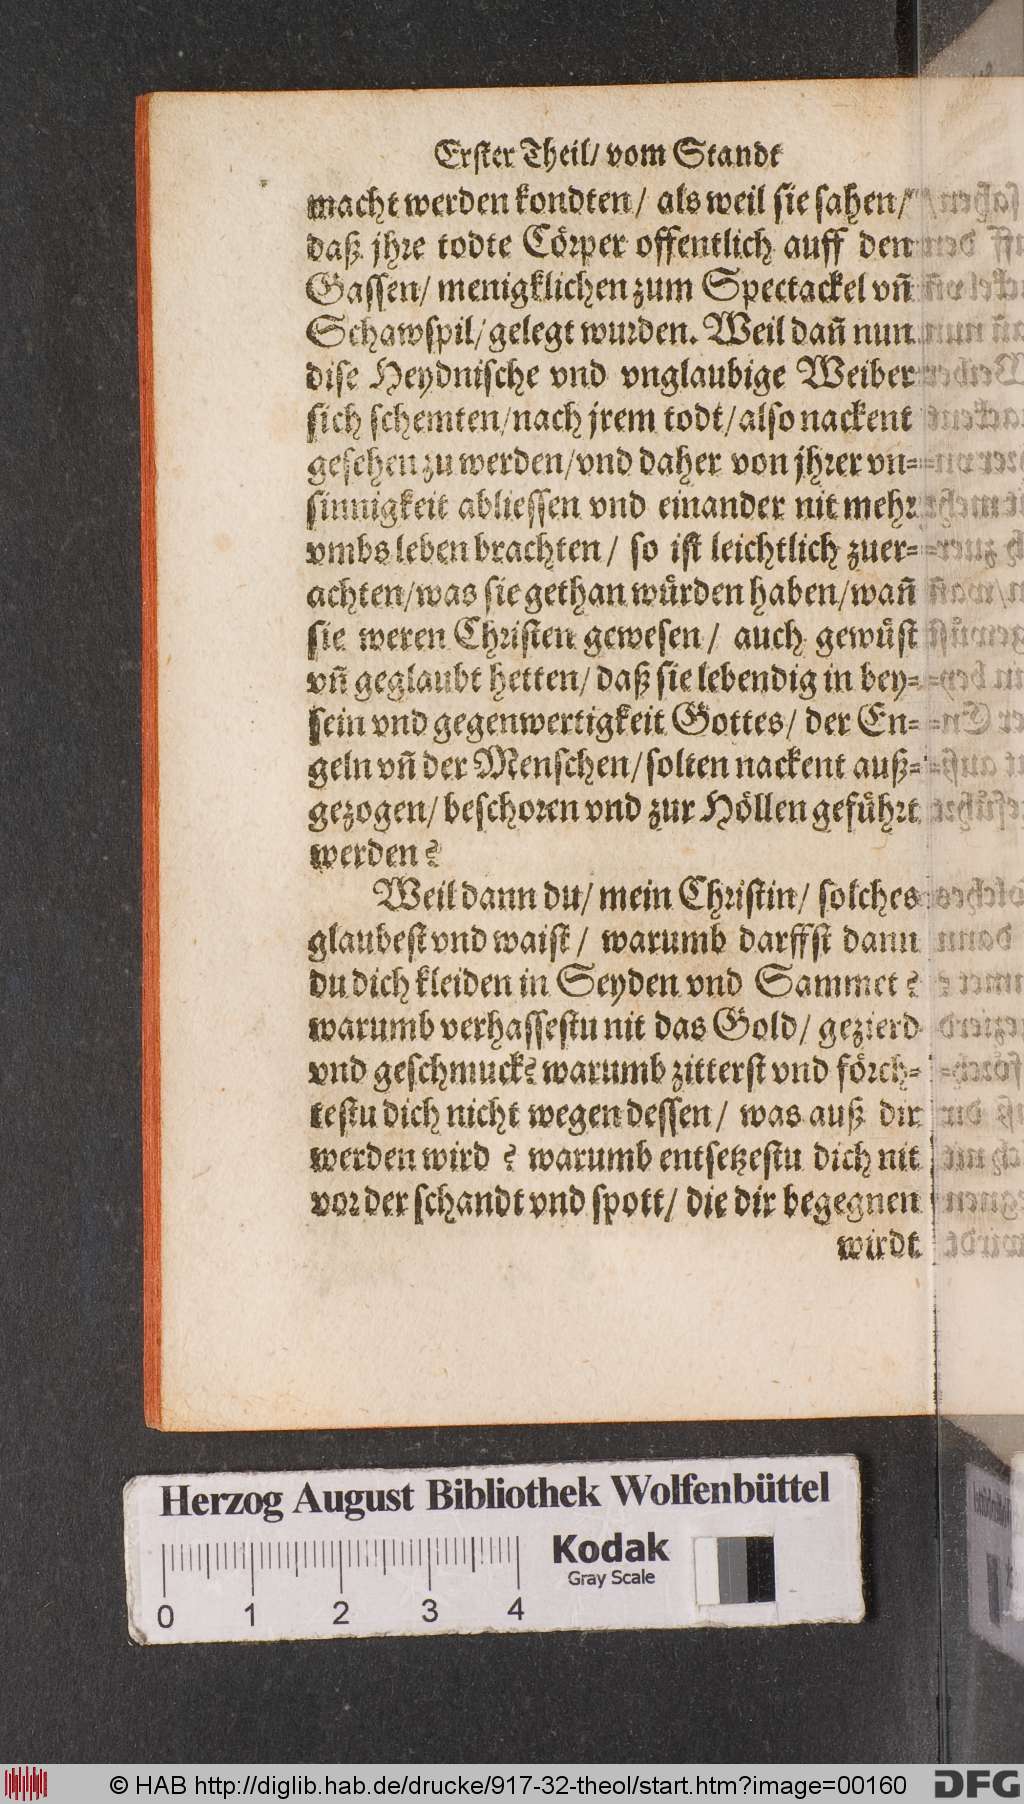 Erster Theil/ vom Standt
macht werden kondten/ als weil sie sahen/
daß jhre todte Cörper offentlich auff den
Gassen/ menigklichen zum Spectackel vn̄
Schawspil/ gelegt wurden. Weil dan̄ nun
dise Heydnische vnd vnglaubige Weiber
sich schemten/ nach jrem todt/ also nackent
gesehen zu werden/ vnd daher von jhrer vn-
sinnigkeit abliessen vnd einander nit mehr
vmbs leben brachten/ so ist leichtlich zuer-
achten/ was sie gethan wuͤrden haben/ wan̄
sie weren Christen gewesen/ auch gewuͤst
vn̄ geglaubt hetten/ daß sie lebendig in bey-
sein vnd gegenwertigkeit Gottes/ der En-
geln vn̄ der Menschen/ solten nackent auß-
gezogen/ beschoren vnd zur Höllen gefuͤhrt
werden?
Weil dann du/ mein Christin/ solches
glaubest vnd waist/ warumb darffst dann
du dich kleiden in Seyden vnd Sammet?
warumb verhassestu nit das Gold/ gezierd
vnd geschmuck? warumb zitterst vnd förch-
testu dich nicht wegen dessen/ was auß dir
werden wird? warumb entsetzestu dich nit
vor der schandt vnd spott/ die dir begegnen
wirdt
Herzog August Bibliothek Wolfenbüttel
Kodak
Gray Scale
0 1 2 3 4
© HAB http://diglib.hab.de/drucke/917-32-theol/start.htm?image=00160
DFG